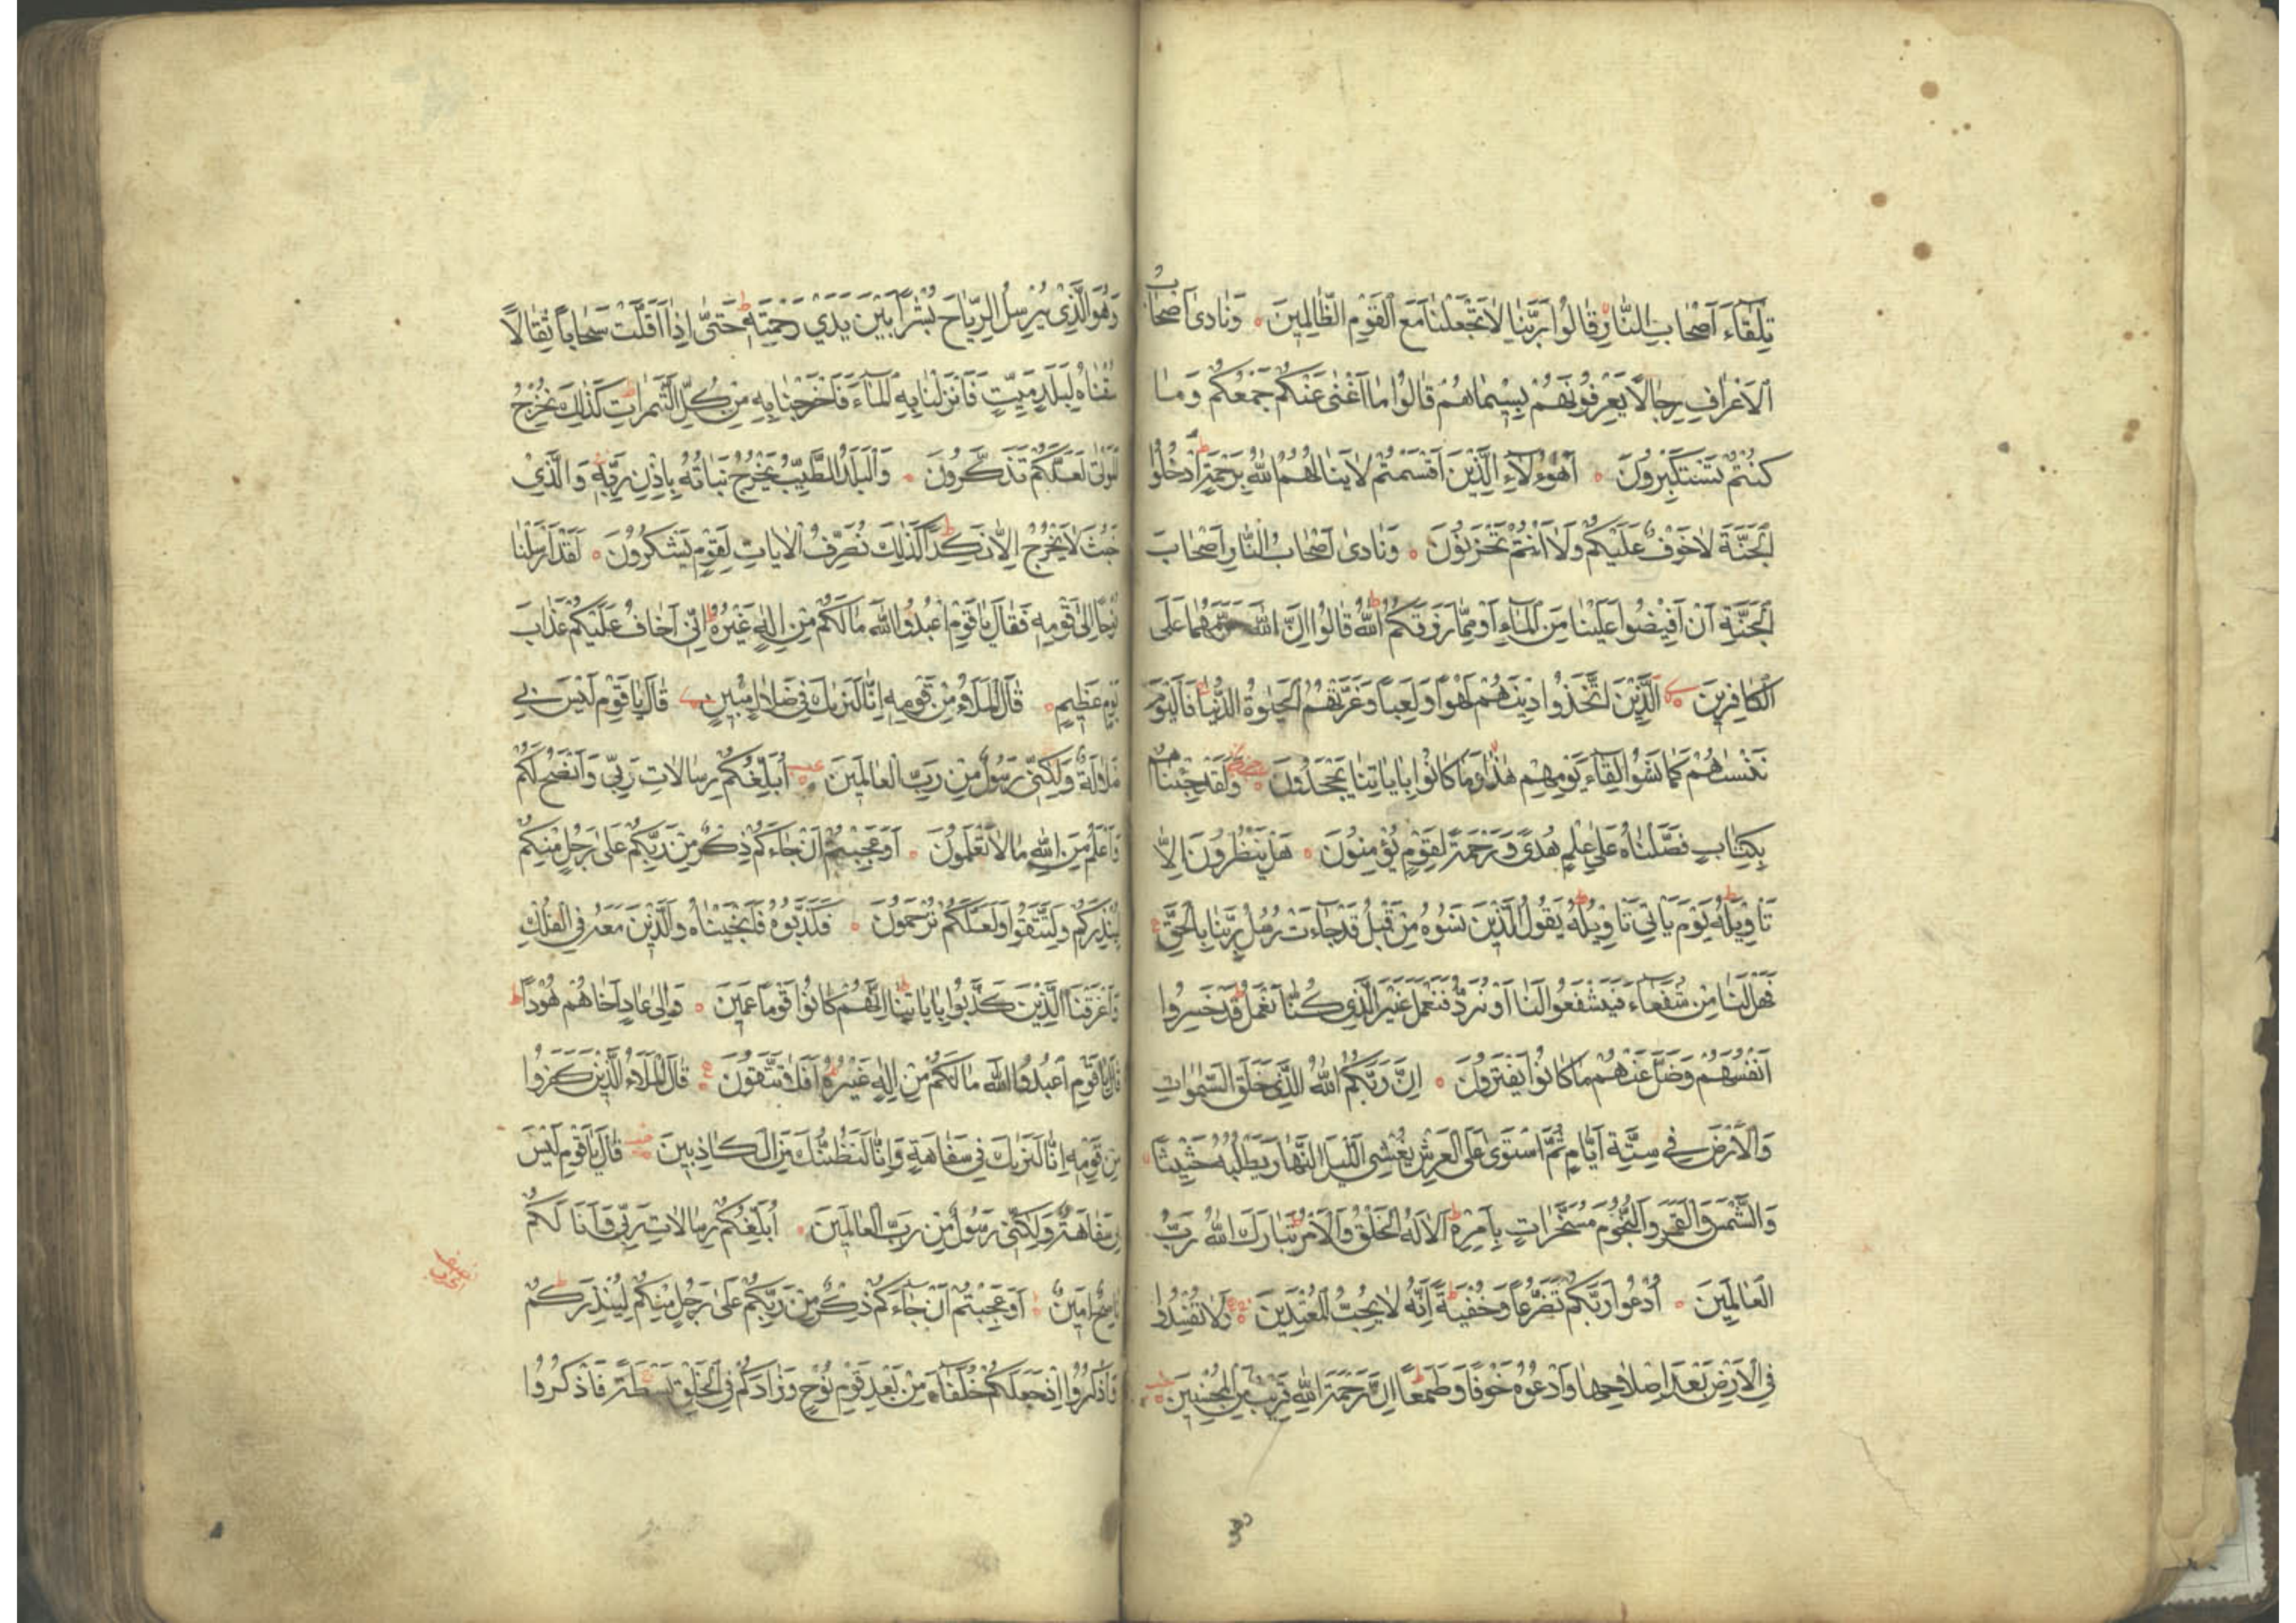 تِلْقَآءَ اَصْحَابِ النَّارِ قَالُوا رَبَّنَا لَا تَجْعَلْنَا مَعَ الْقَوْمِ الظَّالِمِينَ وَنَادىٰ اَصْحَابُ
الْاَعْرَافِ رِجَالًا يَعْرِفُونَهُمْ بِسِيْمَاهُمْ قَالُوا مَا اَغْنٰى عَنْكُمْ جَمْعُكُمْ وَمَا
كُنْتُمْ تَسْتَكْبِرُونَ اَهٰؤُلَآءِ الَّذِيْنَ اَقْسَمْتُمْ لَا يَنَالُهُمُ اللّٰهُ بِرَحْمَةٍ اُدْخُلُوا
الْجَنَّةَ لَا خَوْفٌ عَلَيْكُمْ وَلَا اَنْتُمْ تَحْزَنُوْنَ وَنَادىٰ اَصْحَابُ النَّارِ اَصْحَابَ
الْجَنَّةِ اَنْ اَفِيْضُوا عَلَيْنَا مِنَ الْمَآءِ اَوْ مِمَّا رَزَقَكُمُ اللّٰهُ قَالُوا اِنَّ اللّٰهَ حَرَّمَهُمَا عَلَى
الْكَافِرِيْنَ الَّذِيْنَ اتَّخَذُوا دِيْنَهُمْ لَهْوًا وَلَعِبًا وَغَرَّتْهُمُ الْحَيٰوةُ الدُّنْيَا فَالْيَوْمَ
نَنْسٰىهُمْ كَمَا نَسُوْا لِقَآءَ يَوْمِهِمْ هٰذَا وَمَا كَانُوا بِاٰيَاتِنَا يَجْحَدُوْنَ وَلَقَدْ جِئْنَاهُمْ
بِكِتَابٍ فَصَّلْنَاهُ عَلٰى عِلْمٍ هُدًى وَرَحْمَةً لِقَوْمٍ يُؤْمِنُوْنَ هَلْ يَنْظُرُوْنَ اِلَّا
تَاْوِيْلَهُ يَوْمَ يَاْتِيْ تَاْوِيْلُهُ يَقُوْلُ الَّذِيْنَ نَسُوْهُ مِنْ قَبْلُ قَدْ جَآءَتْ رُسُلُ رَبِّنَا بِالْحَقِّ
فَهَلْ لَنَا مِنْ شُفَعَآءَ فَيَشْفَعُوا لَنَا اَوْ نُرَدُّ فَنَعْمَلَ غَيْرَ الَّذِي كُنَّا نَعْمَلُ قَدْ خَسِرُوا
اَنْفُسَهُمْ وَضَلَّ عَنْهُمْ مَا كَانُوا يَفْتَرُوْنَ اِنَّ رَبَّكُمُ اللّٰهُ الَّذِي خَلَقَ السَّمٰوَاتِ
وَالْاَرْضَ فِي سِتَّةِ اَيَّامٍ ثُمَّ اسْتَوىٰ عَلَى الْعَرْشِ يُغْشِي الَّيْلَ النَّهَارَ يَطْلُبُهُ حَثِيْثًا
وَالشَّمْسَ وَالْقَمَرَ وَالنُّجُوْمَ مُسَخَّرَاتٍ بِاَمْرِهِ اَلَا لَهُ الْخَلْقُ وَالْاَمْرُ تَبَارَكَ اللّٰهُ رَبُّ
الْعَالَمِيْنَ اُدْعُوا رَبَّكُمْ تَضَرُّعًا وَخُفْيَةً اِنَّهُ لَا يُحِبُّ الْمُعْتَدِيْنَ وَلَا تُفْسِدُوا
فِي الْاَرْضِ بَعْدَ اِصْلَاحِهَا وَادْعُوْهُ خَوْفًا وَطَمَعًا اِنَّ رَحْمَةَ اللّٰهِ قَرِيْبٌ مِنَ الْمُحْسِنِيْنَ
وَهُوَ الَّذِيْ يُرْسِلُ الرِّيَاحَ بُشْرًا بَيْنَ يَدَيْ رَحْمَتِهِ حَتّٰى اِذَا اَقَلَّتْ سَحَابًا ثِقَالًا
سُقْنَاهُ لِبَلَدٍ مَيِّتٍ فَاَنْزَلْنَا بِهِ الْمَآءَ فَاَخْرَجْنَا بِهِ مِنْ كُلِّ الثَّمَرَاتِ كَذٰلِكَ نُخْرِجُ
الْمَوْتٰى لَعَلَّكُمْ تَذَكَّرُوْنَ وَالْبَلَدُ الطَّيِّبُ يَخْرُجُ نَبَاتُهُ بِاِذْنِ رَبِّهِ وَالَّذِيْ
خَبُثَ لَا يَخْرُجُ اِلَّا نَكِدًا كَذٰلِكَ نُصَرِّفُ الْاٰيَاتِ لِقَوْمٍ يَشْكُرُوْنَ لَقَدْ اَرْسَلْنَا
نُوْحًا اِلٰى قَوْمِهِ فَقَالَ يَا قَوْمِ اعْبُدُوا اللّٰهَ مَا لَكُمْ مِنْ اِلٰهٍ غَيْرُهُ اِنِّيْ اَخَافُ عَلَيْكُمْ عَذَابَ
يَوْمٍ عَظِيْمٍ قَالَ الْمَلَاُ مِنْ قَوْمِهِ اِنَّا لَنَرٰيكَ فِي ضَلَالٍ مُبِيْنٍ قَالَ يَا قَوْمِ لَيْسَ بِي
ضَلَالَةٌ وَلٰكِنِّي رَسُوْلٌ مِنْ رَبِّ الْعَالَمِيْنَ اُبَلِّغُكُمْ رِسَالَاتِ رَبِّي وَاَنْصَحُ لَكُمْ
وَاَعْلَمُ مِنَ اللّٰهِ مَا لَا تَعْلَمُوْنَ اَوَعَجِبْتُمْ اَنْ جَآءَكُمْ ذِكْرٌ مِنْ رَبِّكُمْ عَلٰى رَجُلٍ مِنْكُمْ
لِيُنْذِرَكُمْ وَلِتَتَّقُوا وَلَعَلَّكُمْ تُرْحَمُوْنَ فَكَذَّبُوْهُ فَاَنْجَيْنَاهُ وَالَّذِيْنَ مَعَهُ فِي الْفُلْكِ
وَاَغْرَقْنَا الَّذِيْنَ كَذَّبُوا بِاٰيَاتِنَا اِنَّهُمْ كَانُوا قَوْمًا عَمِيْنَ وَاِلٰى عَادٍ اَخَاهُمْ هُوْدًا
قَالَ يَا قَوْمِ اعْبُدُوا اللّٰهَ مَا لَكُمْ مِنْ اِلٰهٍ غَيْرُهُ اَفَلَا تَتَّقُوْنَ قَالَ الْمَلَاُ الَّذِيْنَ كَفَرُوا
مِنْ قَوْمِهِ اِنَّا لَنَرٰيكَ فِي سَفَاهَةٍ وَاِنَّا لَنَظُنُّكَ مِنَ الْكَاذِبِيْنَ قَالَ يَا قَوْمِ لَيْسَ
بِي سَفَاهَةٌ وَلٰكِنِّي رَسُوْلٌ مِنْ رَبِّ الْعَالَمِيْنَ اُبَلِّغُكُمْ رِسَالَاتِ رَبِّي وَاَنَا لَكُمْ
نَاصِحٌ اَمِيْنٌ اَوَعَجِبْتُمْ اَنْ جَآءَكُمْ ذِكْرٌ مِنْ رَبِّكُمْ عَلٰى رَجُلٍ مِنْكُمْ لِيُنْذِرَكُمْ
وَاذْكُرُوا اِذْ جَعَلَكُمْ خُلَفَآءَ مِنْ بَعْدِ قَوْمِ نُوْحٍ وَزَادَكُمْ فِي الْخَلْقِ بَسْطَةً فَاذْكُرُوا